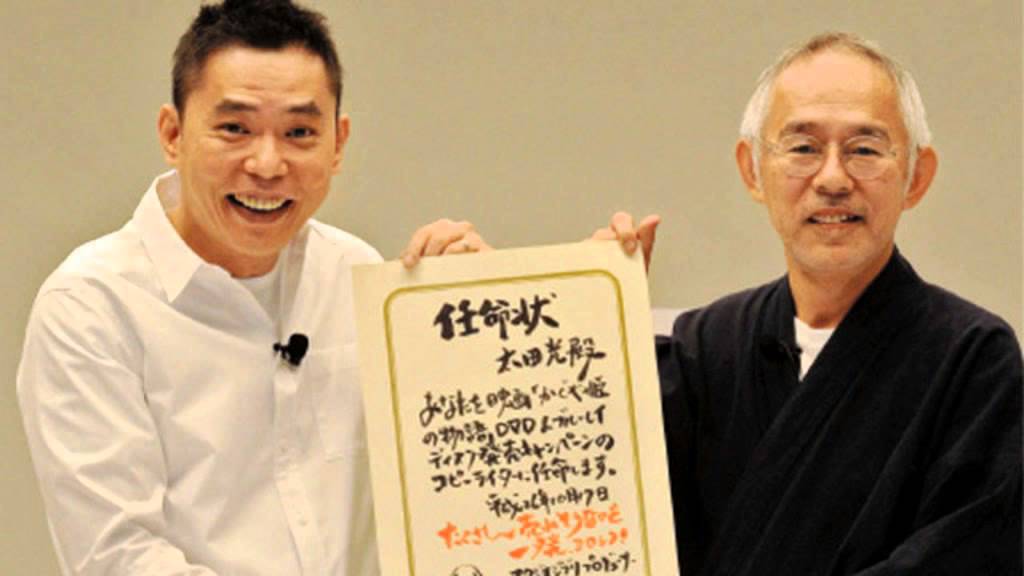 任命状
太田光殿
あなたを映画「かぐや姫
の物語」DVD & ブルーレイ
ディスク発売キャンペーンの
コピーライターに任命します。
平成26年10月7日
たくさん
一発
スタジオジブリ プロデューサー